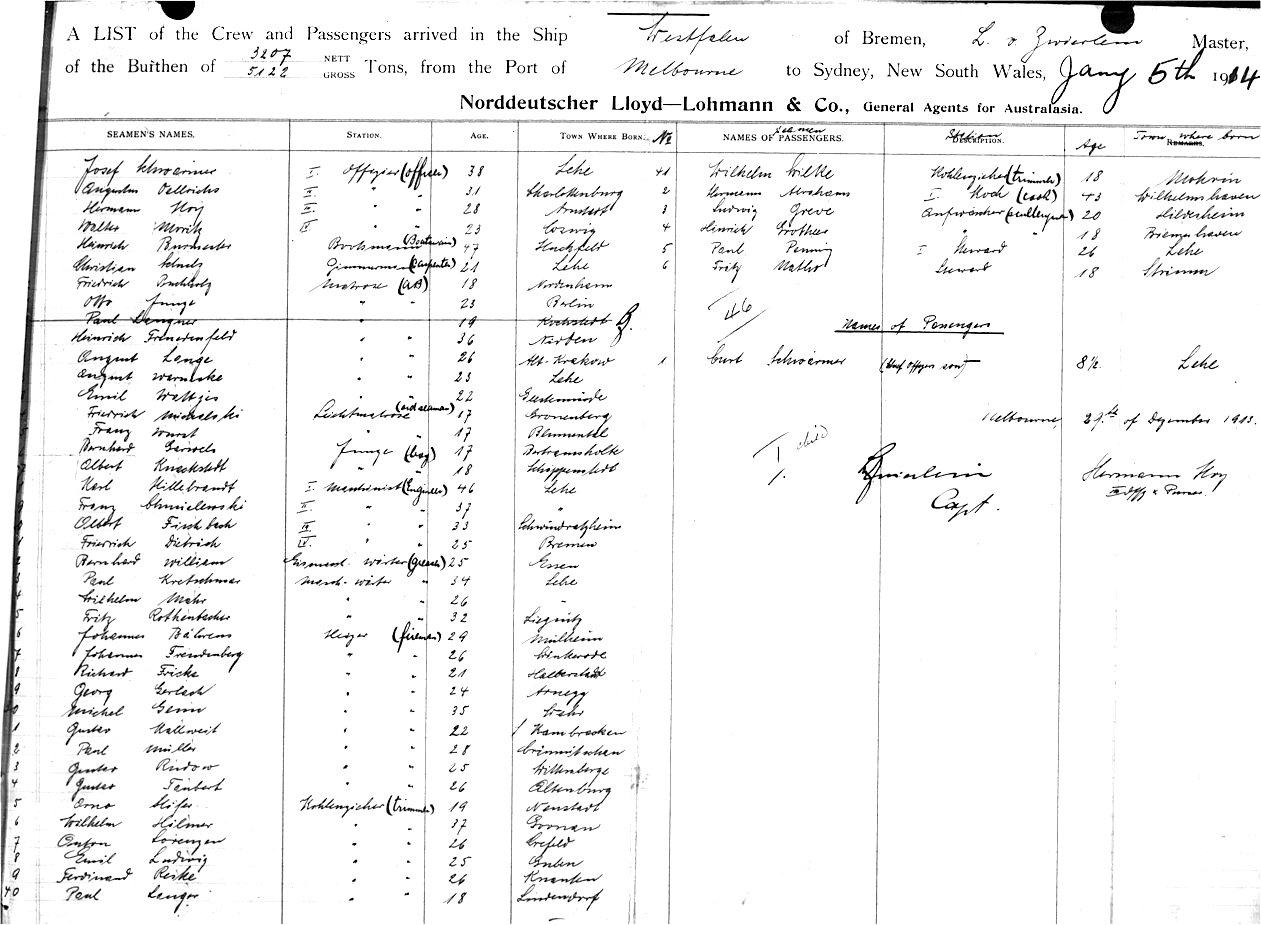 A LIST of the Crew and Passengers arrived in the Ship Westfalen of Bremen, L. v. Zwierlein Master,
of the Burthen of 3207 5122 NETT GROSS Tons, from the Port of Melbourne to Sydney, New South Wales, Jany 5th 1914
Norddeutscher Lloyd—Lohmann & Co., General Agents for Australasia.
SEAMEN'S NAMES. STATION. AGE. TOWN WHERE BORN. No NAMES OF PASSENGERS. Seamen Station DESCRIPTION. Age Town where born REMARKS.
Josef Schwärmer I. Offizier (officer) 38 Lehe 41 Wilhelm Wilke Kohlenzieher (trimmer) 18 Mohrin
Augustin Oellrichs II. " " 31 Charlottenburg 2 Hermann Abrahams I. Koch (cook) 43 Wilhelmshaven
Hermann Hoy III. " " 28 Arnstadt 3 Ludwig Greve Aufwäscher 20 Hildesheim
Walter Moritz IV. " " 23 Coswig 4 Hinrich Grotheer " " 18 Bremerhaven
Heinrich Burmester Bootsmann (Boatswain) 47 5 Paul Penning I Steward 26 Lehe
Christian Schulz Zimmermann (Carpenter) 21 Lehe 6 Fritz Steward 18
Friedrich Buchholz Matrose (AB) 18 Nordenham
Otto Junge " " 23 Berlin 46
Paul Langner " 19 Kochstedt Names of Passengers
Heinrich " " 36 Norden
August Lange " " 26 Alt Krakow 1 Curt Schwärmer (Chief Offizers son) 8½ Lehe
August Warnecke " " 23 Lehe
Emil Waltjes " " 22 Geestemünde
Friedrich Michalski Leichtmatrose (ord seaman) 17 Cronenberg Melbourne, 29th of Dezember 1913.
Franz Wurst " " 17 Blumental
Bernhard Junge (boy) 17 1 child
Albert Knackstedt " " 18 Schöppenstedt 1. Zwierlein Hermann Hoy
Karl Hillebrandt I. Maschinist (Engineer) 46 Lehe Capt.
Franz Chmielewski II. " " 37 "
Albert Fischbach III. " " 33 Schwindratzheim
Friedrich Dietrich IV. " " 25 Bremen
2 Bernhard William (greaser) 25 Essen
3 Paul Kretschmar Masch.-wärter " 34 Lehe
4 Wilhelm Mahr " " 26 "
5 Fritz Rothenbacher " " 32 Liegnitz
6 Johannes Bährens Heizer (fireman) 29 Mülheim
7 Johannes Freudenberg " " 26
8 Richard Fricke " " 21 Halberstadt
9 Georg Gerlach " " 24 Arnegg
30 Michel " " 35
1 Gustav Kallweit " " 22
2 Paul Müller " " 28 Crimmitschau
3 Gustav Rudow " " 25 Wittenberge
4 Gustav Taubert " " 26 Altenburg
5 Arno Höfer Kohlenzieher (trimmer) 19 Neustadt
6 Wilhelm Hilmer " " 37 Gronau
7 Anton Lorenzen " " 26 Crefeld
8 Emil Ludwig " " 25 Guben
9 Ferdinand Reske " " 26
40 Paul Langer " " 18 Lindendorf